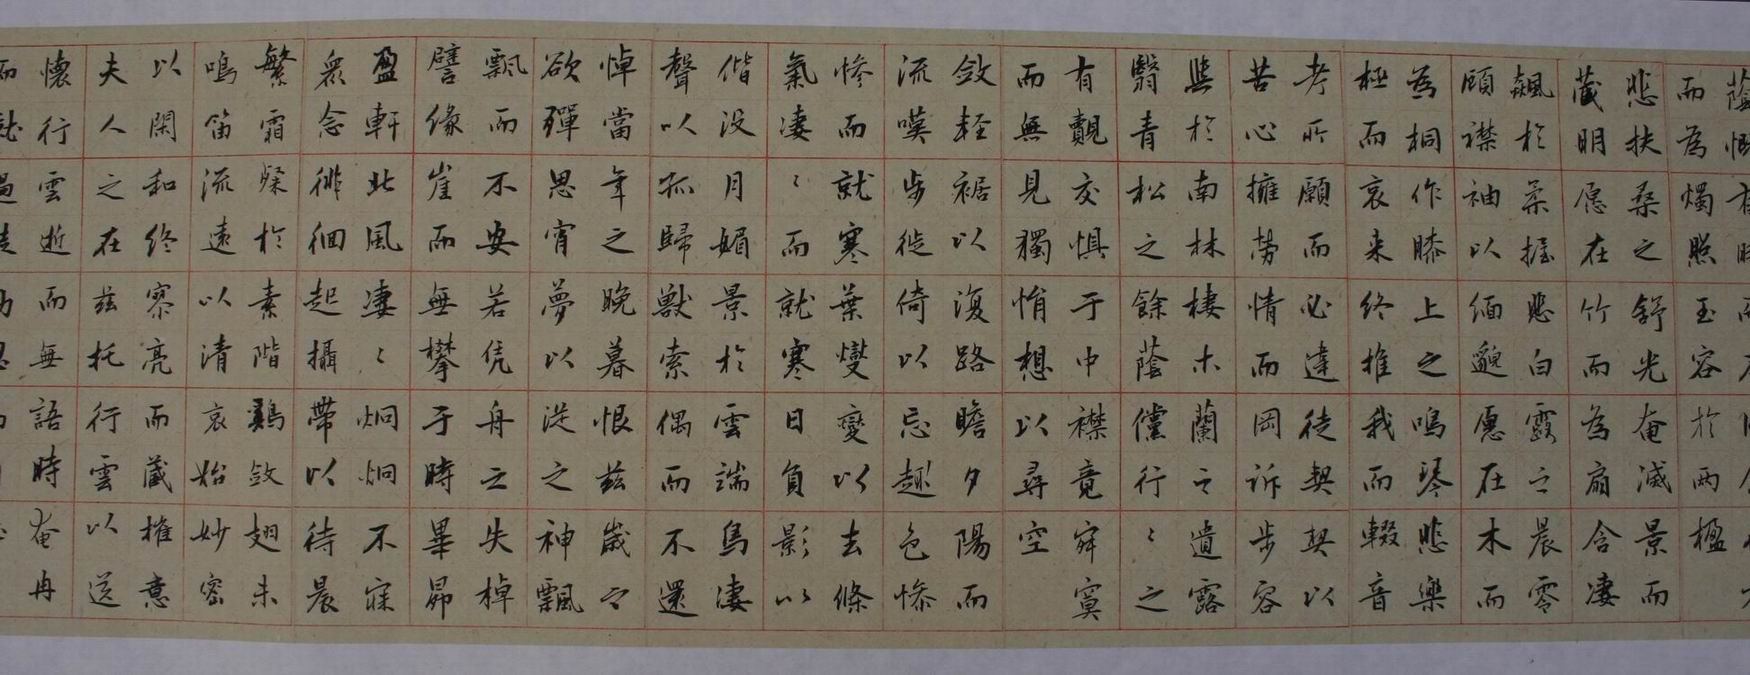 蔭慨有時而不
而為燭照玉容於兩楹
悲扶桑之舒光奄滅景而
藏明愿在竹而為扇含凄
飆於柔握悲白露之晨零
顧襟袖以緬邈愿在木而
為桐作膝上之鳴琴悲樂
極而哀来終推我而輟音
考所願而必違徒契契以
苦心擁勞情而岡訴步容
與於南林棲木蘭之遺露
翳青松之餘蔭儻行〻之
有覿交惧于中襟竟寂寞
而無見獨悁想以尋空
斂輕裾以復路瞻夕陽而
流嘆步徙倚以忘趣色慘
慘而就寒葉燮變以去條
氣凄〻而就寒日負影以
偕没月媚景於雲端鳥凄
聲以孤歸獸索偶而不還
悼當年之晚暮恨茲歲之
欲殫思宵夢以從之神飄
飄而不安若凭舟之失棹
譬缘崖而無攀于時畢昴
盈軒北風凄〻炯炯不寐
衆念徘徊起攝帶以待晨
繁霜燦於素階鷄斂翅未
鳴笛流遠以清哀始妙密
以閑和终寥亮而藏摧意
夫人之在茲托行雲以送
懷行雲逝而無語時奄冉
而就過